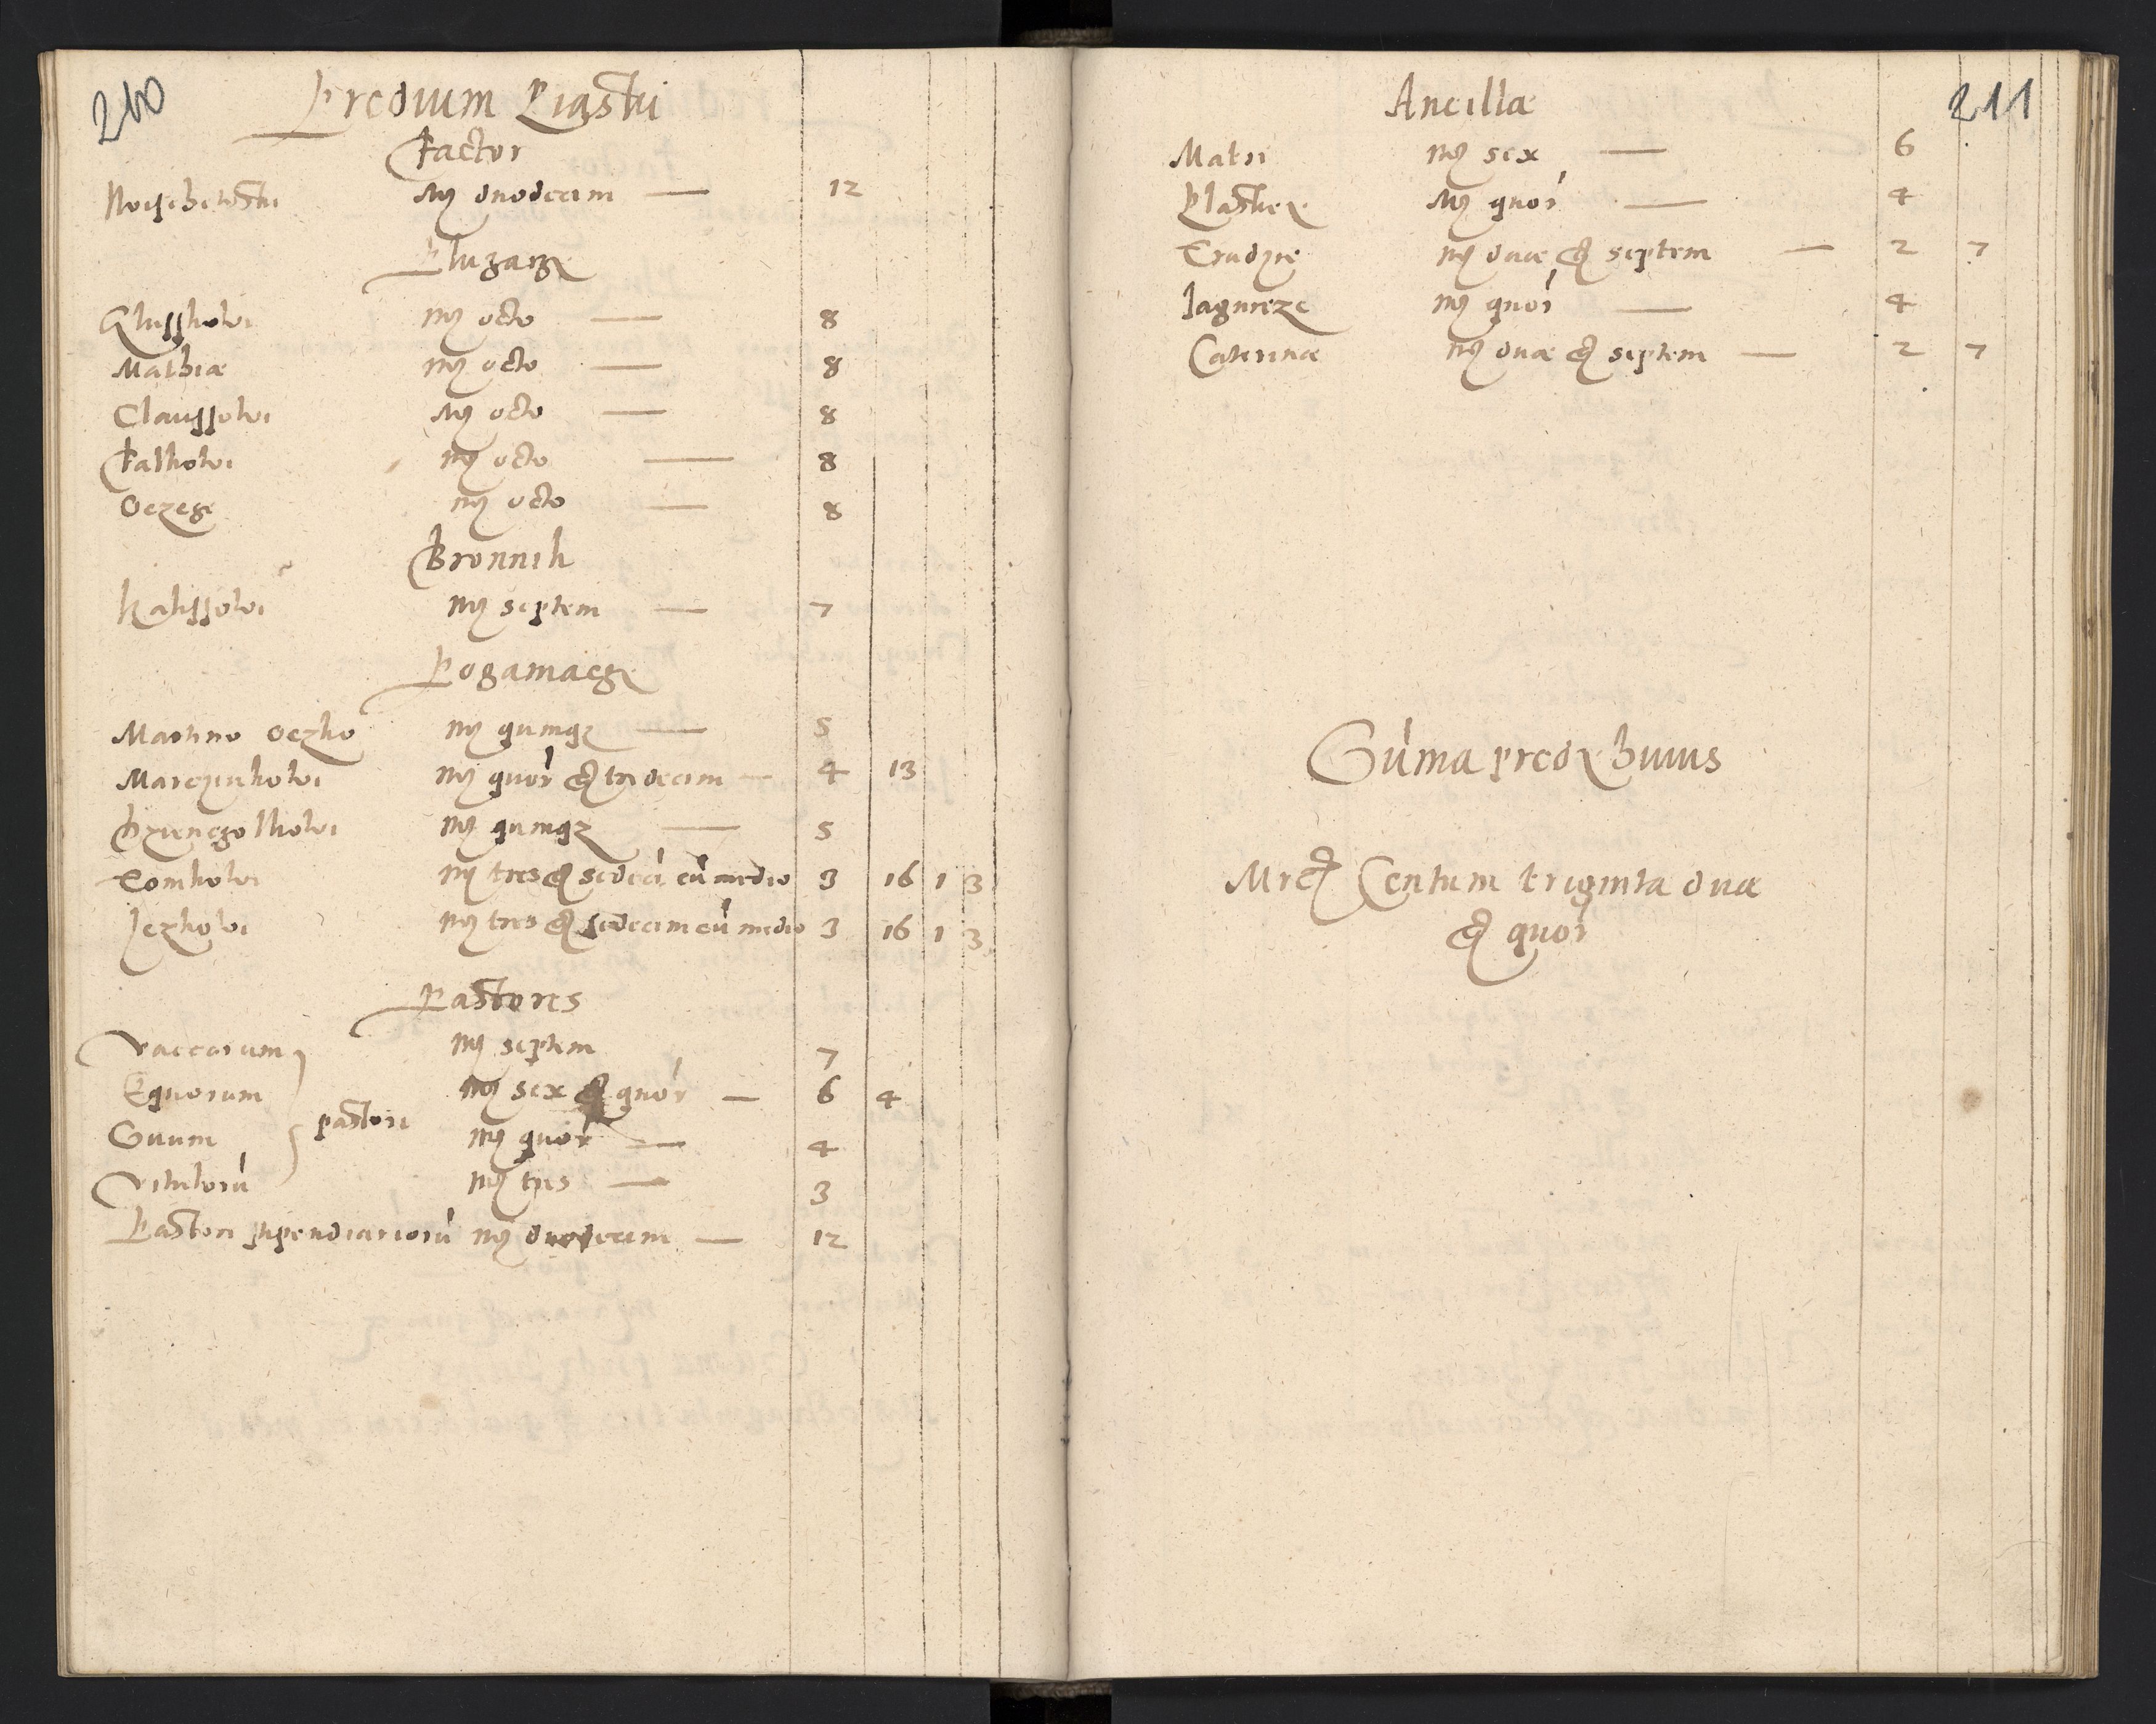 210
Predium Piaski
Factor
Noischewski Mrc duodecim — 12
Pluzarz
Glusskowi Mrc octo — 8
Mathiæ Mrc octo — 8
Claussowi Mrc octo — 8
Falkowi Mrc octo — 8
Oczege Mrc octo — 8
Bronnik
Kalissowi Mrc septem — 7
Poganiacze
Martino Oczko Mrc quinqz — 5
Marczinkowi Mrc quor et tridecim — 4 13
Mrc quinqz — 5
Tomkowi Mrc tres et sedeci cu medio 3 16 1 3
Jezkowi Mrc tres et sedecim cu medio 3 16 1 3
Pastores
Vaccarum Mrc septem 7
Equorum Mrc sex et quor — 6 4
pastori
Ovium Mrc quor — 4
Vituloru Mrc tres — 3
Pastori stipendiarioru Mrc duodecim — 12
211
Ancillæ
Matri Mrc sex — 6
Mrc quor — 4
Mrc duæ et septem — 2 7
Jagnieze Mrc quor — 4
Caterinæ Mrc duæ et septem — 2 7
Suma predy huius
Mrc Centum triginta duæ
et quor